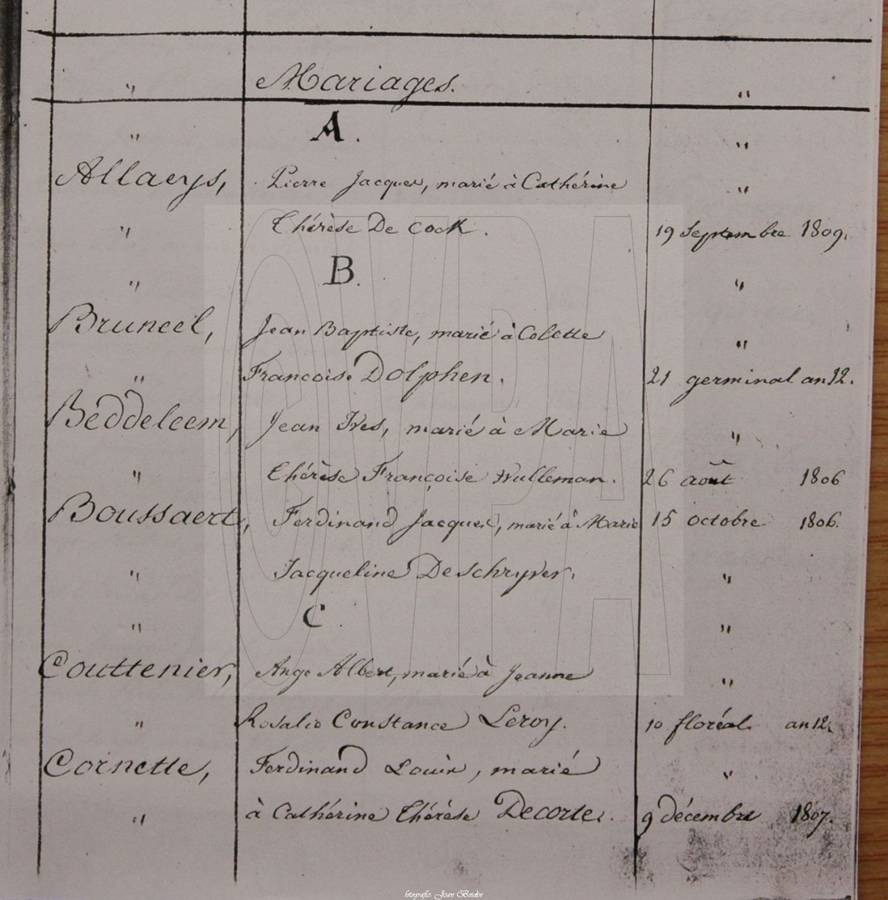 " Mariages. "
" A. "
Allaeys, Pierre Jacques, marié à Cathérine "
" Thérèse De Cock. 19 Septembre 1809.
" B. "
Bruneel, Jean Baptiste, marié à Colette "
" Francoise Dolphen. 21 germinal an 12.
Beddeleem, Jean Ives, marié à Marie "
" Thérèse Françoise Wulleman. 26 août 1806
Boussaert, Ferdinand Jacques, marié à Marie 15 octobre 1806.
" Jacqueline De Schryver. "
" C. "
Couttenier, Ange Albert, marié à Jeanne "
" Rosalie Constance Leroy. 10 floréal an 12.
Cornette, Ferdinand Louis, marié "
" à Cathérine Thérèse Decorte. 9 décembre 1807.